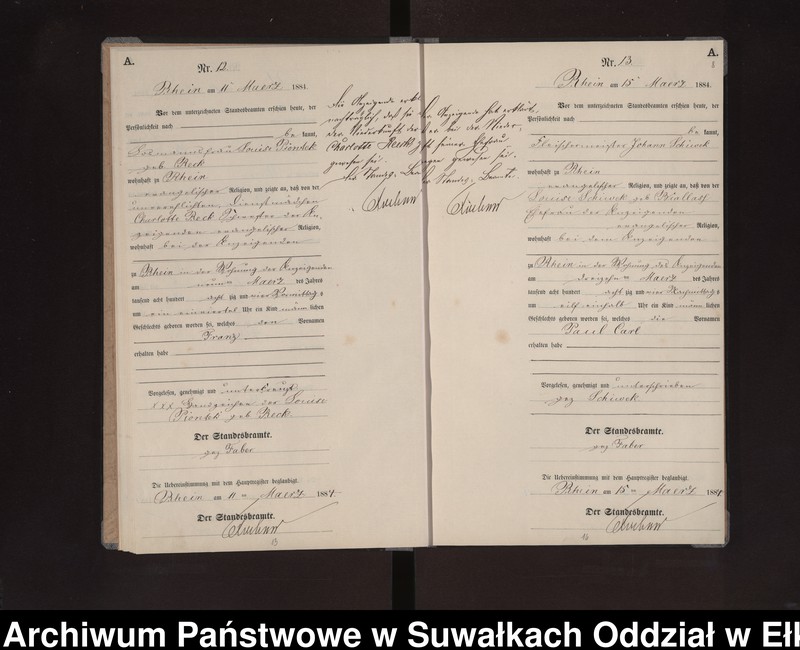 A.
Nr. 12
Rhein am 11 Maerz 1884.
Vor dem unterzeichneten Standesbeamten erschien heute, der
Persönlichkeit nach
be kannt,
Louise Piontek
geb Reck
wohnhaft zu Rhein
evangelischer Religion, und zeigte an, daß von der
unverehelichten Dienstmädchen
Charlotte Reck
evangelischer Religion,
wohnhaft bei der Anzeigenden
zu Rhein in der Wohnung der Anzeigenden
am neunten Maerz des Jahres
tausend acht hundert acht zig und vier Vormittags
um ein einviertel Uhr ein Kind männ lichen
Geschlechts geboren worden sei, welches den Vornamen
Franz
erhalten habe
Vorgelesen, genehmigt und unterkreuzt
xxx Handzeichen der Louise
Piontek geb Reck
Der Standesbeamte.
gez Faber
Die Uebereinstimmung mit dem Hauptregister beglaubigt.
Rhein am 11 Maerz 1884
Der Standesbeamte.
Die Anzeigende
nachträglich, daß sie
der Niederkunft der
Charlotte Reck
gewesen sei.
A.
Nr. 13
Rhein am 15 Maerz 1884.
Vor dem unterzeichneten Standesbeamten erschien heute, der
Persönlichkeit nach
be kannt,
Fleischermeister Johann Schiwek
wohnhaft zu Rhein
evangelischer Religion, und zeigte an, daß von der
Louise Schiwek geb Biallass
Ehefrau des Anzeigenden
evangelischer Religion,
wohnhaft bei dem Anzeigenden
zu Rhein in der Wohnung des Anzeigenden
am dreizehnten Maerz des Jahres
tausend acht hundert acht zig und vier Nachmittags
um eilf einhalb Uhr ein Kind männ lichen
Geschlechts geboren worden sei, welches die Vornamen
Paul Carl
erhalten habe
Vorgelesen, genehmigt und unterschrieben
gez Schiwek
Der Standesbeamte.
gez Faber
Die Uebereinstimmung mit dem Hauptregister beglaubigt.
Rhein am 15 Maerz 1884
Der Standesbeamte.
Der Anzeigende hat erklärt,
daß er bei der Nieder-
kunft seiner Ehefrau
zugegen gewesen sei.
Der Standes-Beamte.
Archiwum Państwowe w Suwałkach Oddział w Ełk